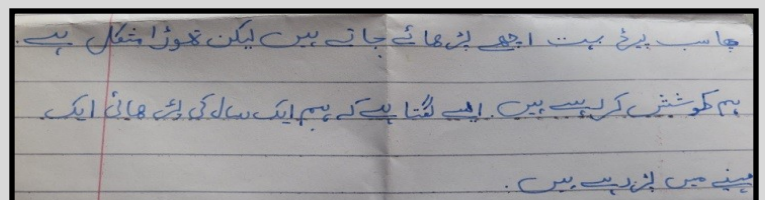 سب پیرئ بہت اچھے پڑھائے جاتے ہیں لیکن تھوڑا مشکل ہے۔
ہم کوشش کر رہے ہیں۔ ایسے لگتا ہے کہ ہم ایک سال کی پڑھائی ایک
مہینے میں پڑ رہے ہیں۔